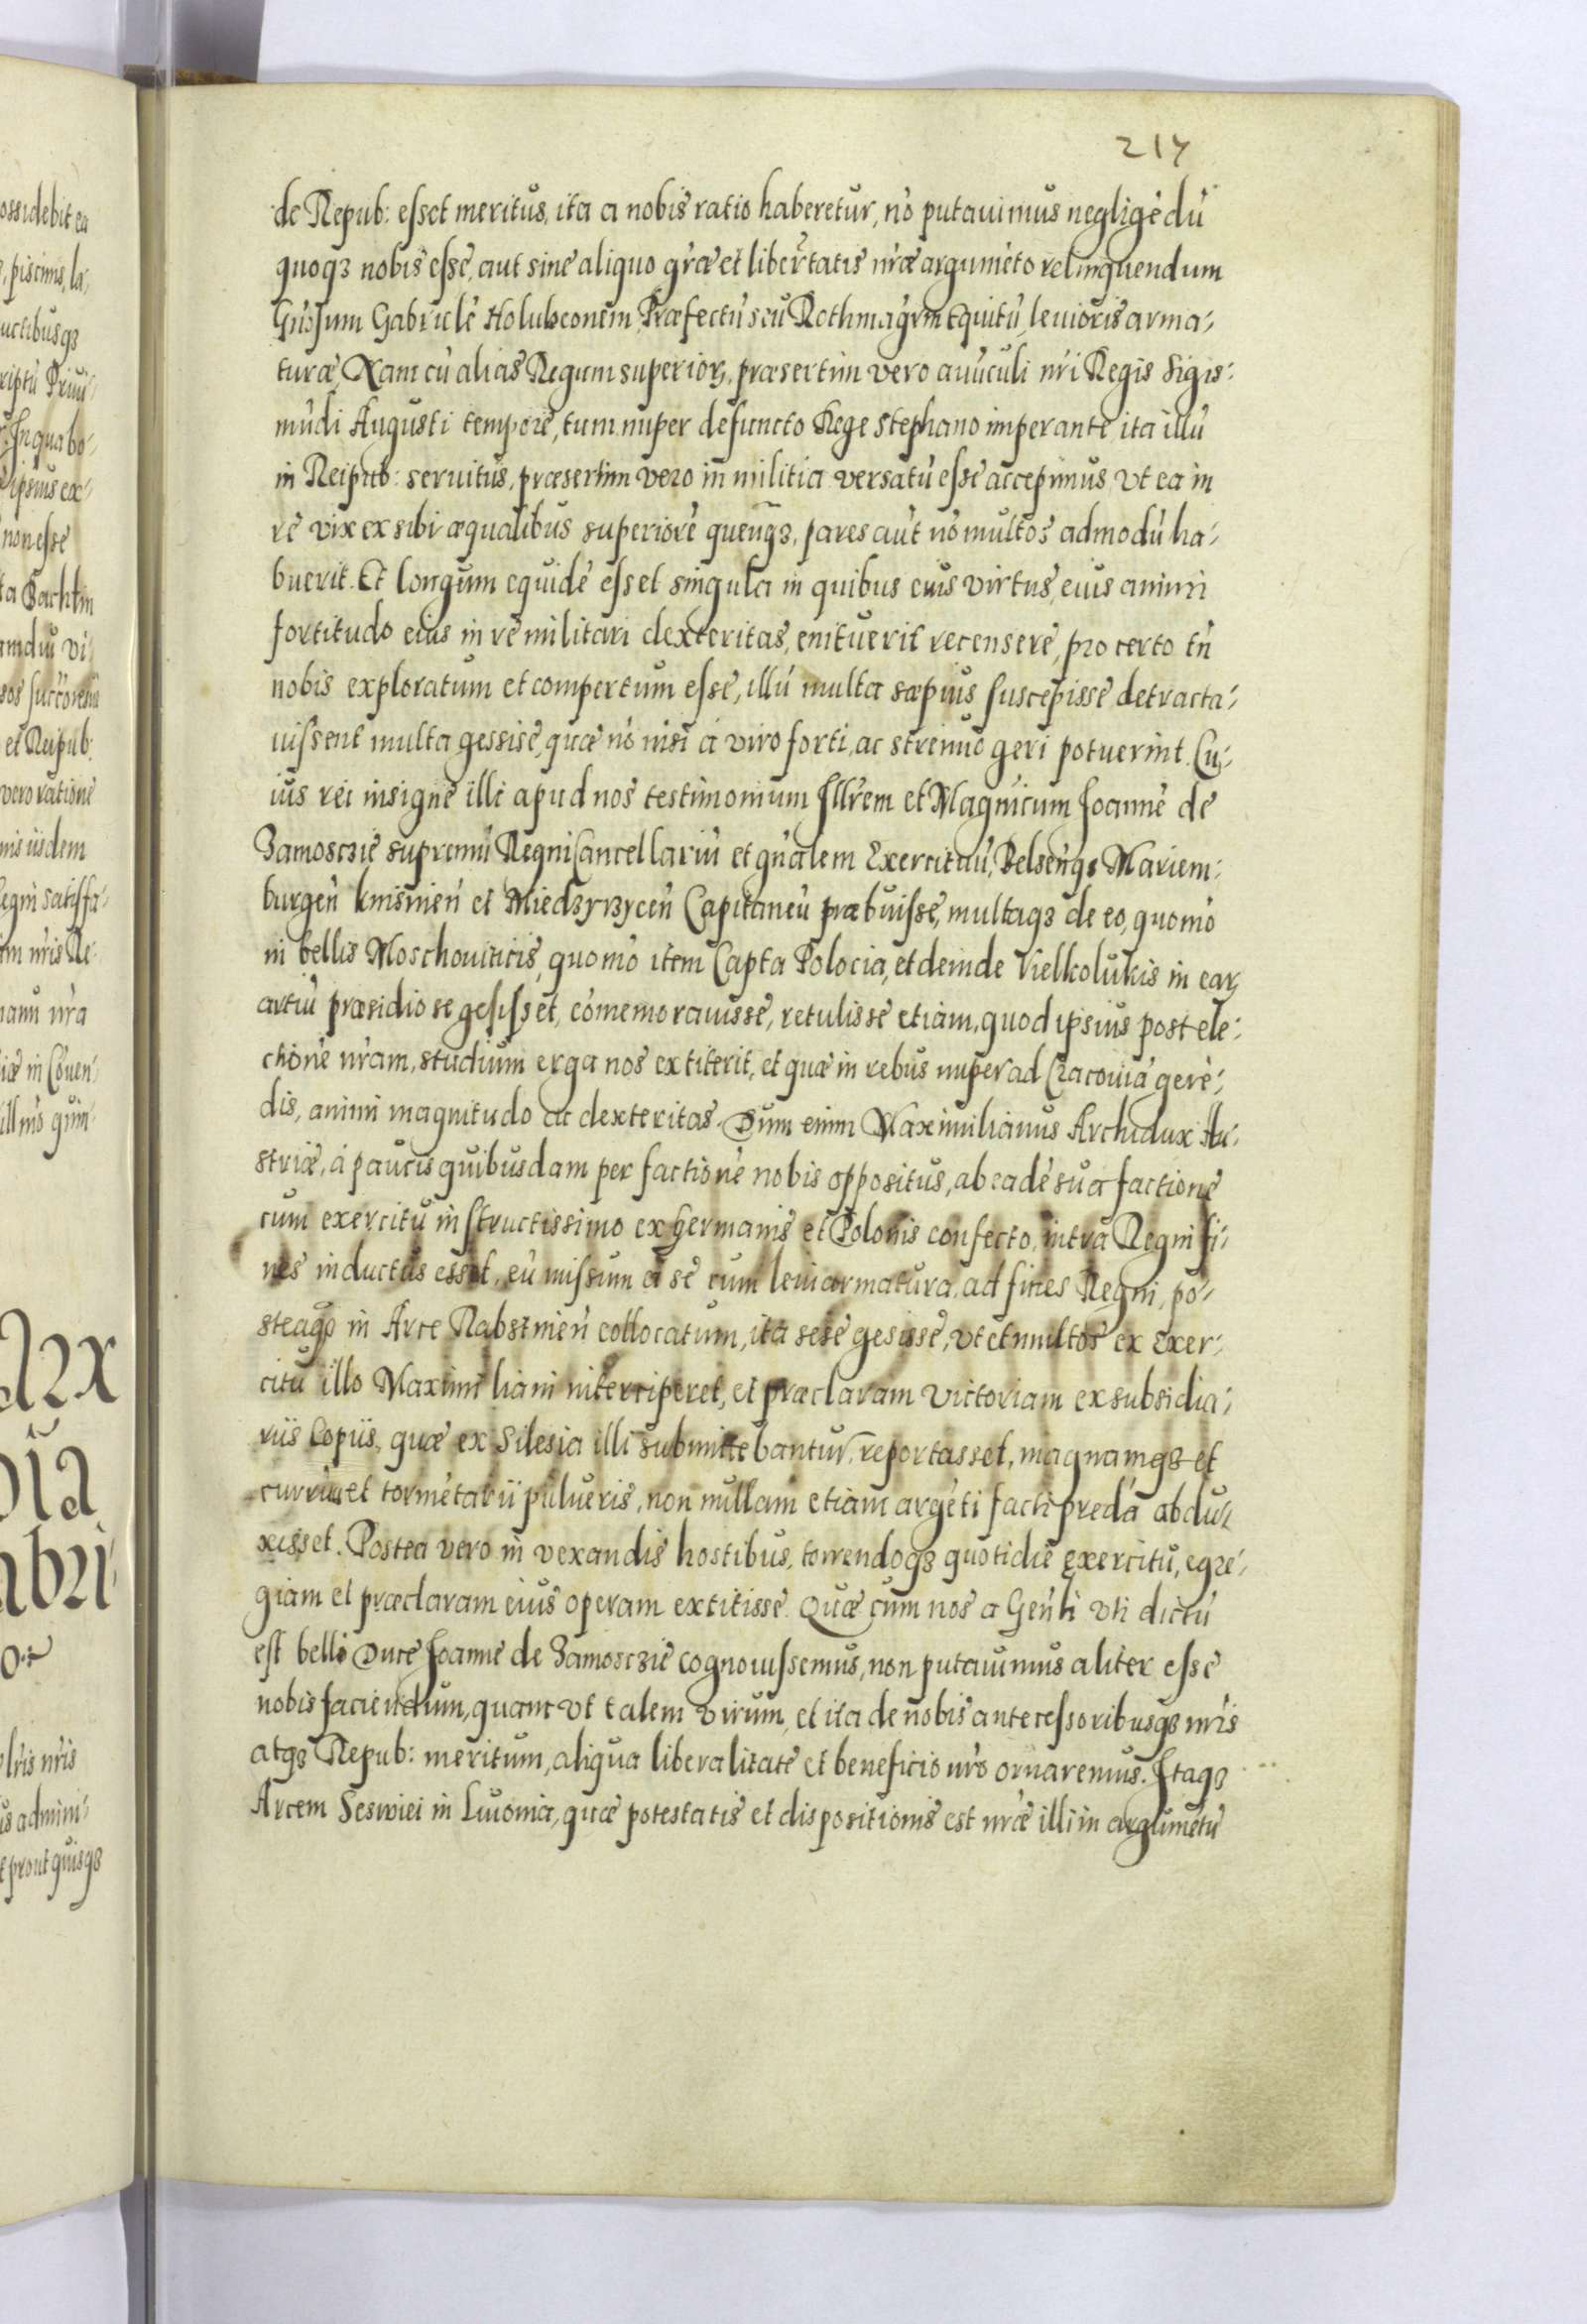 214
de Repub: esset meritus, ita a nobis ratio haberetur, nō putauimus negligēdū
quoqꝫ nobis esse, aut sine aliquo gr̃æ et libertatis nr̃æ argumēto relinquendum
Gñosum Gabrielē Holubconem Præfectū seu Rothmagr̃m Equitū leuioris arma-
turæ, Nam cū alias Regum superioꝝ, præsertim vero auūculi nr̃i Regis Sigis:
mūdi Augusti tempore, tum nuper defuncto Rege Stephano imperante, ita illū
in Reipub: seruitijs, præsertim vero in militia versatū esse accepimus, vt ea in
re vix ex sibi æqualibus superiorē quenq̃ꝫ, pares aut nō multos admodū ha-
buerit. Et longum equidē esset singula in quibus eius virtus, eius animi
fortitudo eius in re militari dexteritas, enituerit recensere, pro certo tn̄
nobis exploratum et compertum esse, illū multa sæpius suscepisse detracta-
uissent multa gessisse, quæ nō nisi á viro forti, ac strenuo geri potuerint. Cu-
ius rei insigne illi apud nos testimonium Illr̃em et Magnicum Joannē de
Zamosczie supremū Regni Cancellariū et gn̄alem Exercituū, Belseñqꝫ Mariem:
burgeñ knisineñ et Miedzyrzyceñ Capitaneū præbuisse, multaqꝫ de eo, quomō
in bellis Moschouiticis, quomō item Capta Polocia, et deinde Vielkolukis in eaꝝ
artiū præsidio se gessisset, cōmemorauisse, retulisse etiam, quod ipsius post ele:
ctionē nr̃am, studium erga nos extiterit, et quæ in rebus nuper ad Cracouiā gerē-
dis, animi magnitudo ac dexteritas. Dum enim Maximilianus Archidux Au-
striæ, á paucis quibusdam per factionē nobis oppositus, ab eadē sua factione
cum exercitu instructissimo ex Germanis et Polonis confecto, intra Regni fi-
nes inductus esset, eū missum á se cum leui armatura, ad fines Regni, po-
steaqꝫ in Arce Rabstineñ collocatum, ita sese gessisse, vt et multos ex Exer-
citu illo Maximiliani interciperet, et præclaram victoriam ex subsidia-
riis Copiis, quæ ex Silesia illi submittebantur, reportasset, magnamqꝫ et
curruū et tormētarii pulueris, non nullam etiam argēti facti predā abdu-
xisset. Postea vero in vexandis hostibus, torrendoqꝫ quotidie exercitu, egre-
giam et præclaram eius operam extitisse. Quæ cum nos a Geñli vti dictū
est belli Duce Joanne de Zamosczie cognouissemus, non putauimus aliter esse
nobis faciendum, quam vt talem virum, et ita de nobis antecessoribusqꝫ nr̃is
atqꝫ Repub: meritum, aliqua liberalitate et beneficio nr̃o ornaremus. Itaqꝫ
Arcem Seswiei in Liuonia, quæ potestatis et dispositionis est nr̃æ illi in argumētū